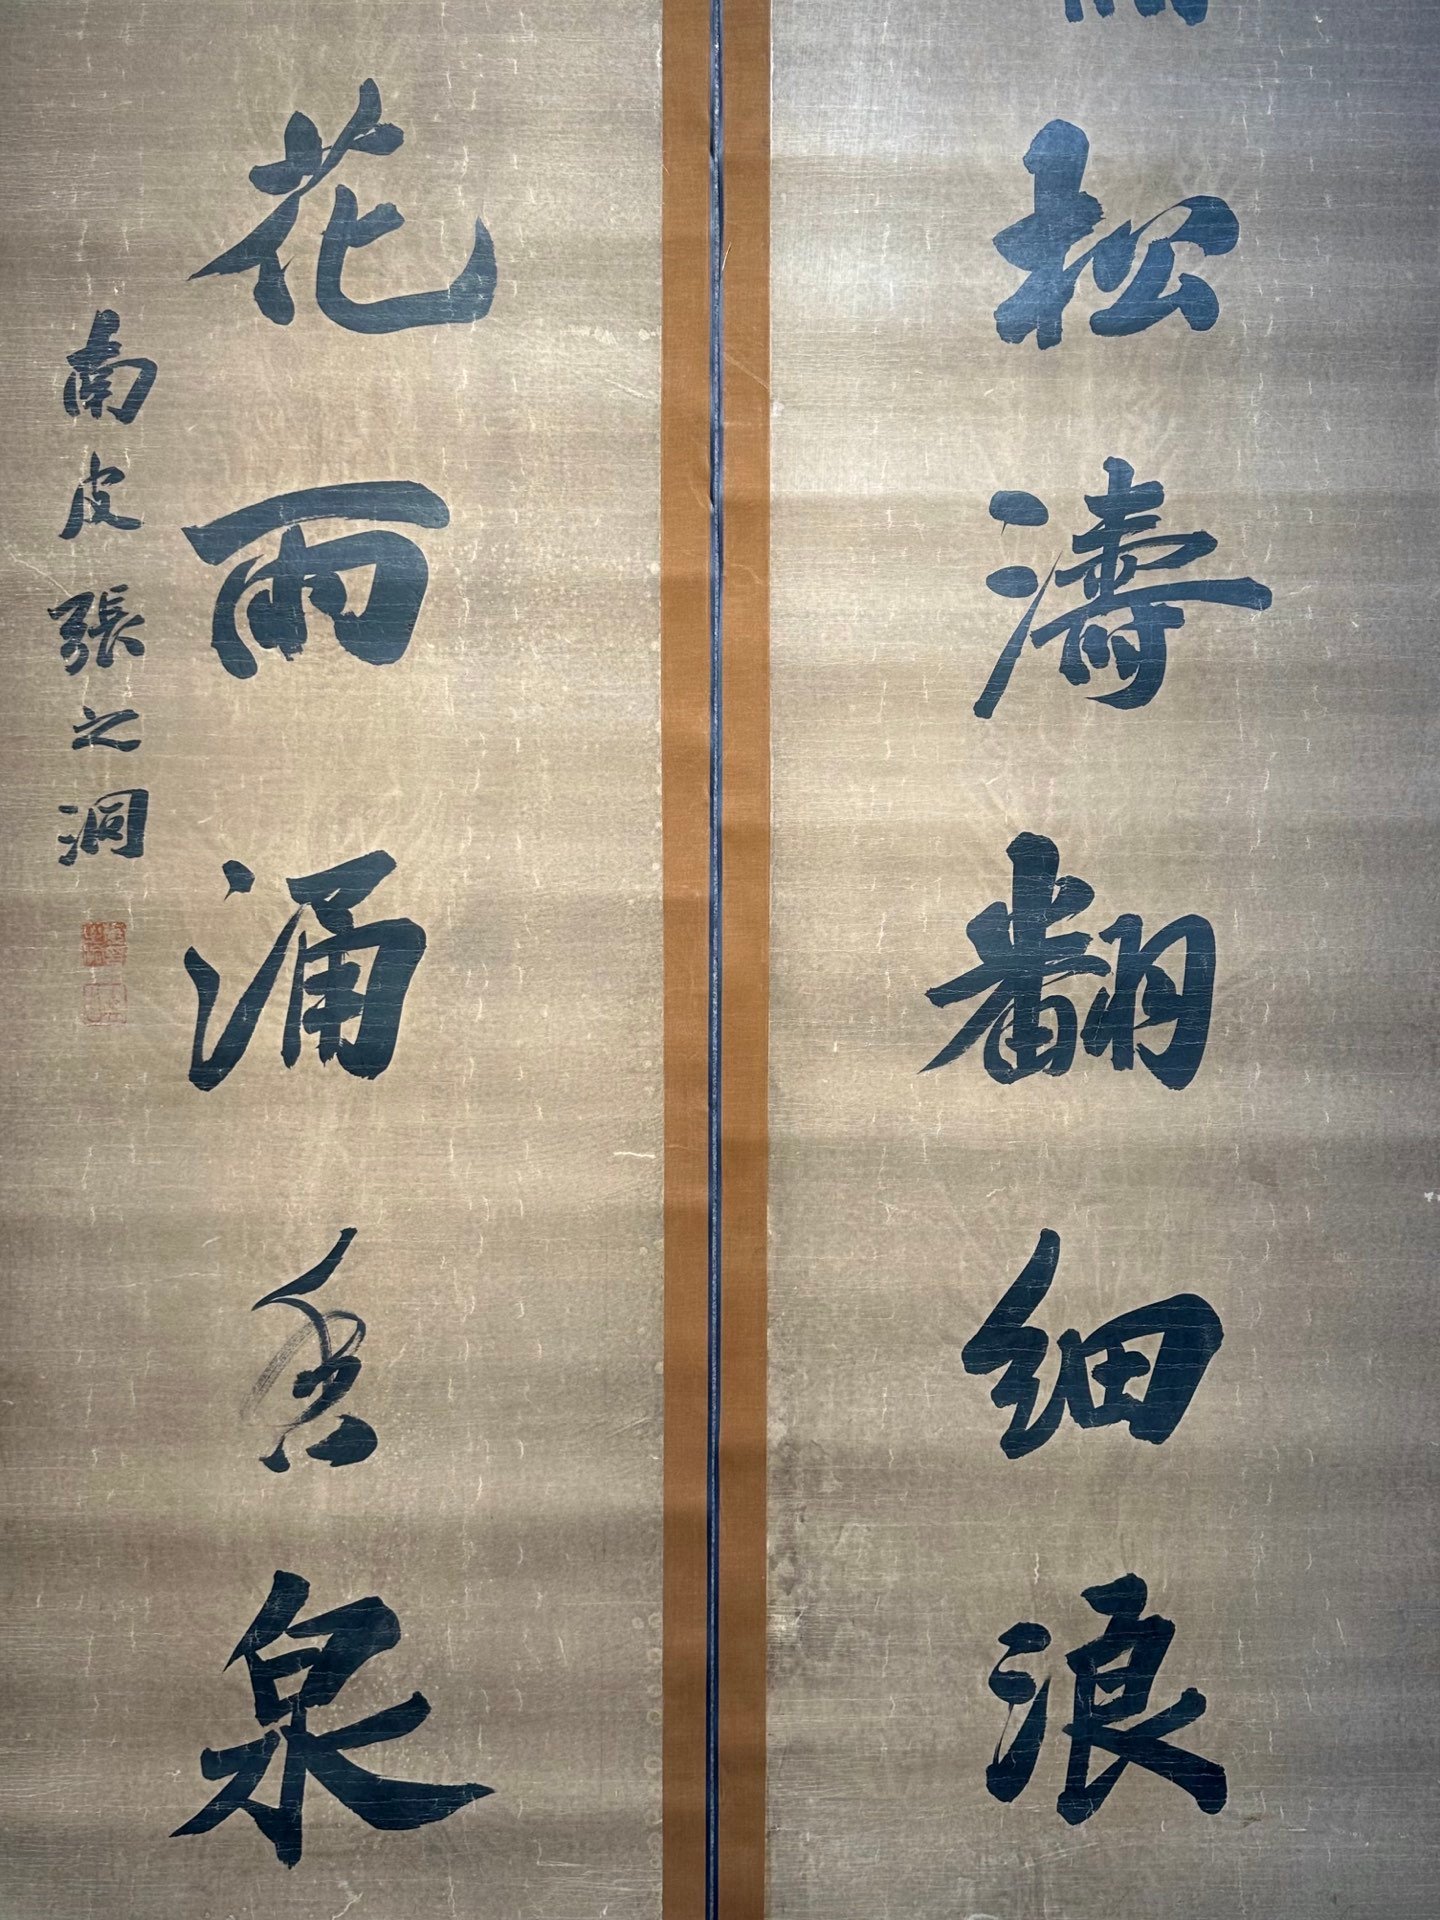 松濤翻細浪
花雨涌香泉
南皮張之洞